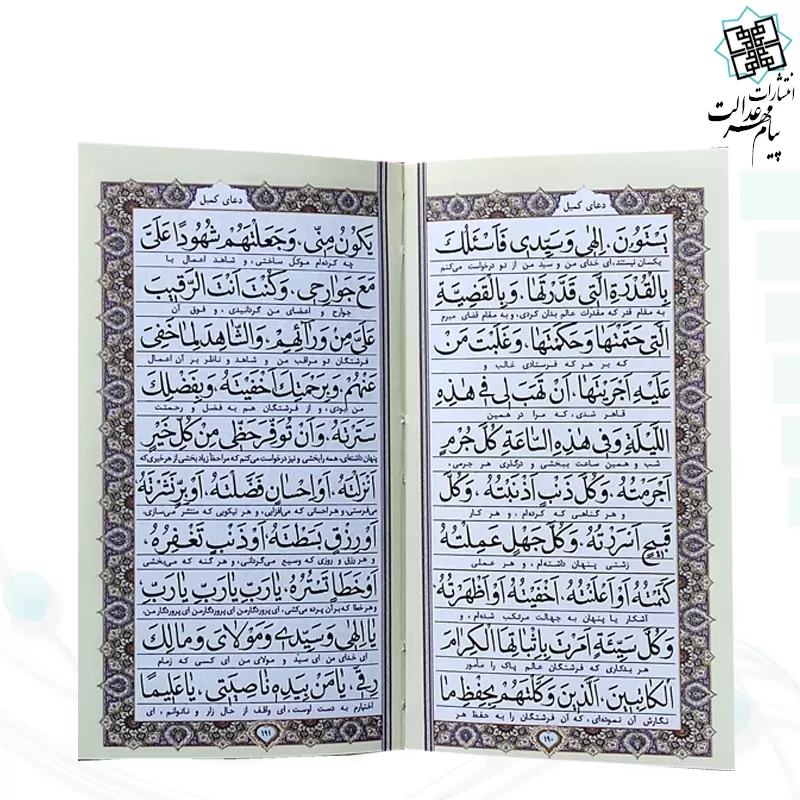 انتشارات
پیام مهر عدالت
دعای کمیل
یَسْتَوُونَ، اِلهی وَ سَیِّدی فَاَسْئَلُكَ
یکسان نیستند، ای خدای من و سید من از تو درخواست می‌کنم
بِالْقُدْرَةِ الَّتی قَدَّرْتَها، وَ بِالْقَضِیَّةِ
به مقام قدر که مقدرات عالم بدان کردی، و به مقام قضای مبرم
الَّتی حَتَمْتَها وَ حَكَمْتَها، وَ غَلَبْتَ مَنْ
که بر هر که فرستادی غالب و
عَلَیْهِ اَجْرَیْتَها، اَنْ تَهَبَ لی فی هذِهِ
قاهر شدی، که مرا در همین
اللَّیْلَةِ وَ فی هذِهِ السّاعَةِ كُلَّ جُرْمٍ
شب و همین ساعت ببخشی و درگذری هر جرمی،
اَجْرَمْتُهُ، وَ كُلَّ ذَنْبٍ اَذْنَبْتُهُ، وَ كُلَّ
و هر گناهی که کرده‌ام، و هر کار
قَبیحٍ اَسْرَرْتُهُ، وَ كُلَّ جَهْلٍ عَمِلْتُهُ
زشتی پنهان داشته‌ام، و هر عملی
كَتَمْتُهُ اَوْ اَعْلَنْتُهُ، اَخْفَیْتُهُ اَوْ اَظْهَرْتُهُ،
آشکار یا پنهان به جهالت مرتکب شده‌ام، و
وَ كُلَّ سَیِّئَةٍ اَمَرْتَ بِاِثْباتِهَا الْكِرامَ
هر بدکاری که فرشتگان عالم پاک را مأمور
الْكاتِبینَ، الَّذینَ وَكَّلْتَهُمْ بِحِفْظِ ما
نگارش آن نموده‌ای، که آن فرشتگان را به حفظ هر
۱۹۰
دعای کمیل
یَكُونُ مِنّی، وَ جَعَلْتَهُمْ شُهُودًا عَلَیَّ
چه کرده‌ام موکل ساختی، و شاهد اعمال با
مَعَ جَوارِحی، وَ كُنْتَ اَنْتَ الرَّقیبَ
جوارح و اعضای من گردانیدی، و فوق آن
عَلَیَّ مِنْ وَرائِهِمْ، وَ الشّاهِدَ لِما خَفِیَ
فرشتگان تو مراقب من و شاهد و ناظر بر آن اعمال
عَنْهُمْ، وَ بِرَحْمَتِكَ اَخْفَیْتَهُ، وَ بِفَضْلِكَ
من بودی، و از فرشتگان هم به فضل و رحمتت
سَتَرْتَهُ، وَ اَنْ تُوَفِّرَ حَظّی مِنْ كُلِّ خَیْرٍ
پنهان داشته‌ای، همه را ببخشی و نیز درخواست می‌کنم که مرا حظّ زیاد بخشی از هر خیری که
اَنْزَلْتَهُ، اَوْ اِحْسانٍ فَضَّلْتَهُ، اَوْ بِرٍّ نَشَرْتَهُ،
می‌فرستی و هر احسانی که می‌افزایی، و هر نیکویی که منتشر می‌سازی،
اَوْ رِزْقٍ بَسَطْتَهُ، اَوْ ذَنْبٍ تَغْفِرُهُ،
و هر رزق و روزی که وسیع می‌گردانی، و هر گنه که می‌بخشی
اَوْ خَطَاٍ تَسْتُرُهُ، یا رَبِّ یا رَبِّ یا رَبِّ،
و هر خطا که بر آن پرده می‌کشی، ای پروردگار من ای پروردگار من ای پروردگار من،
یا اِلهی وَ سَیِّدی وَ مَوْلایَ وَ مالِكَ
ای خدای من ای سید و مولای من ای کسی که زمام
رِقّی، یا مَنْ بِیَدِهِ ناصِیَتی، یا عَلیمًا
اختیارم به دست اوست، ای واقف از حال زار و ناتوانم، ای
۱۹۱